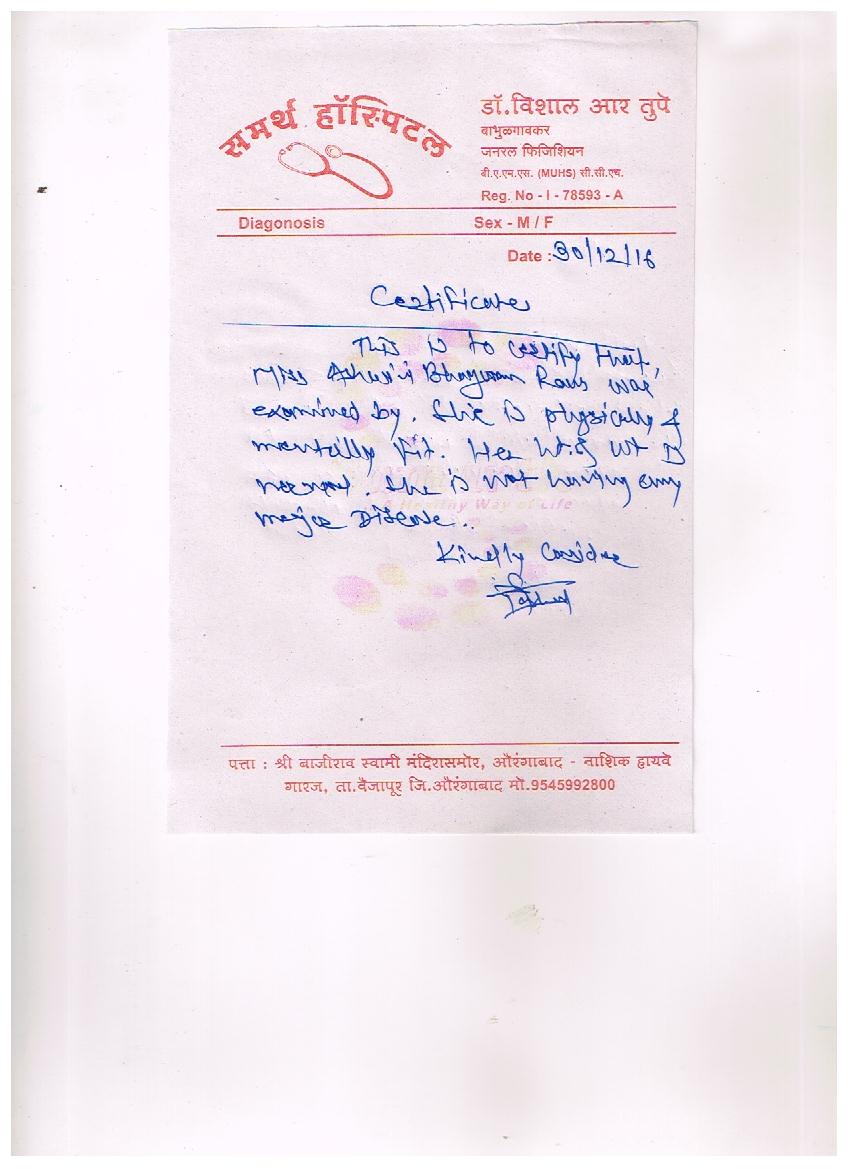 समर्थ हॉस्पिटल
डॉ.विशाल आर तुपे
बाभुळगावकर
जनरल फिजिशियन
बी.ए.एम.एस. (MUHS) सी.सी.एच.
Reg. No - I - 78593 - A
Diagonosis Sex - M / F
Date : 30/12/16
Certificate
This is to certify that,
Miss Ashwini Bhagwan was
examined by. She is physically &
mentally fit. Her ht & wt is
normal. She is not having any
A Healthy Way of Life
major Disease..
Kindly Consider
पत्ता : श्री बाजीराव स्वामी मंदिरासमोर, औरंगाबाद - नाशिक हायवे
गारज, ता.वैजापूर जि.औरंगाबाद मो.9545992800